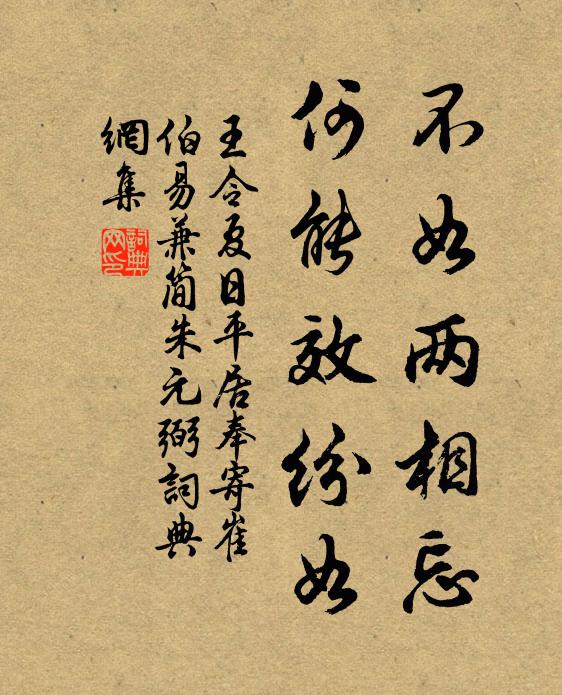 不如两相忘
何能效纷如
王令夏日平居奉寄崔
伯易兼简朱元弼詞典
網集
詞典網印